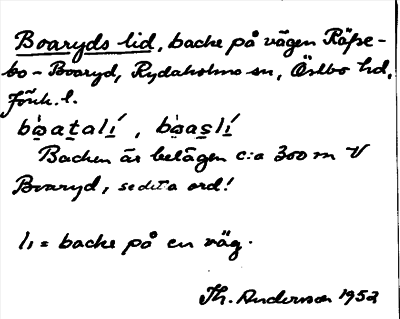 Boaryds lid, backe på vägen Räpe-
bo - Boaryd, Rydaholms sn, Östbo hd,
Jönk. l.
Backen är belägen c:a 300 m V
Boaryd, se detta ord!
li = backe på en väg.
Th. Andersson 1952